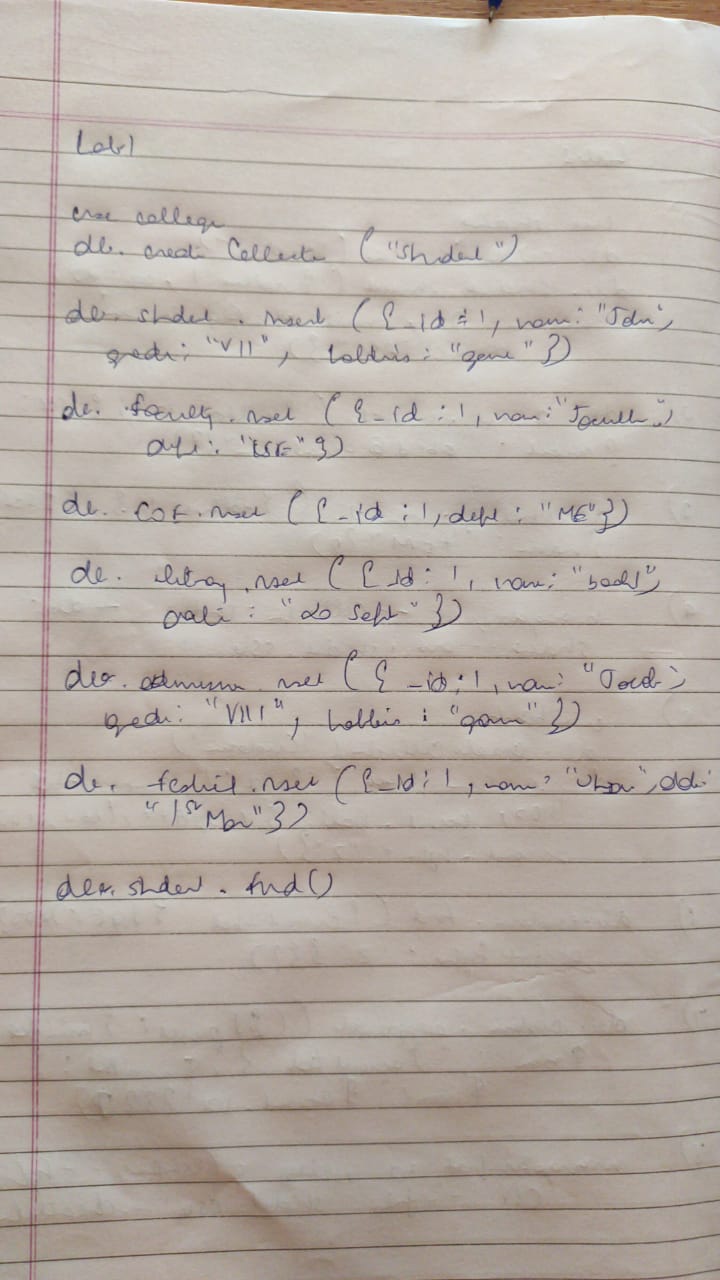 Lab1
use college
db. create Collection ("Student")
db. student . insert ({_id : 1, name : "John",
grade : "VII", hobbies : "game" })
db. faculty . insert ({_id : 1, name : "
dept : "ISE" })
db. COE . insert ({_id : 1, dept : "ME"})
db. library . insert ({_id : 1, name : "book1"
date : "20 Sept" })
db. admission . insert ({_id : 1, name : "Jacob",
grade : "VIII", hobbies : "game" })
db. . insert ({_id : 1, name : " ",
"1st Mar" })
db. student . find()